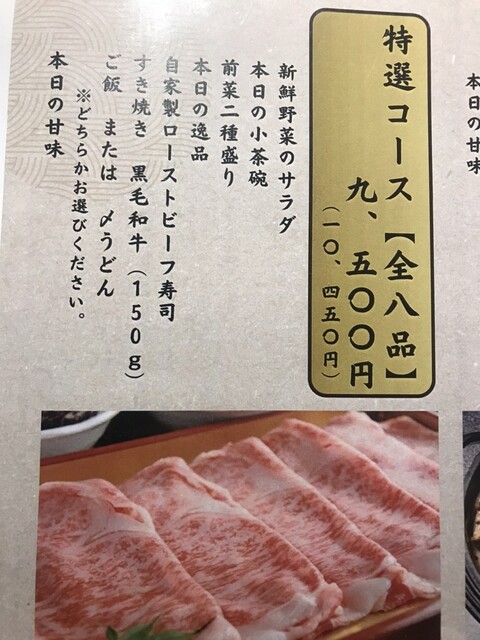 本日の甘味
特選コース【全八品】
九、五〇〇円
（一〇、四五〇円）
新鮮野菜のサラダ
本日の小茶碗
前菜二種盛り
本日の逸品
自家製ローストビーフ寿司
すき焼き　黒毛和牛（150g）
ご飯　または　〆うどん
※どちらかお選びください。
本日の甘味